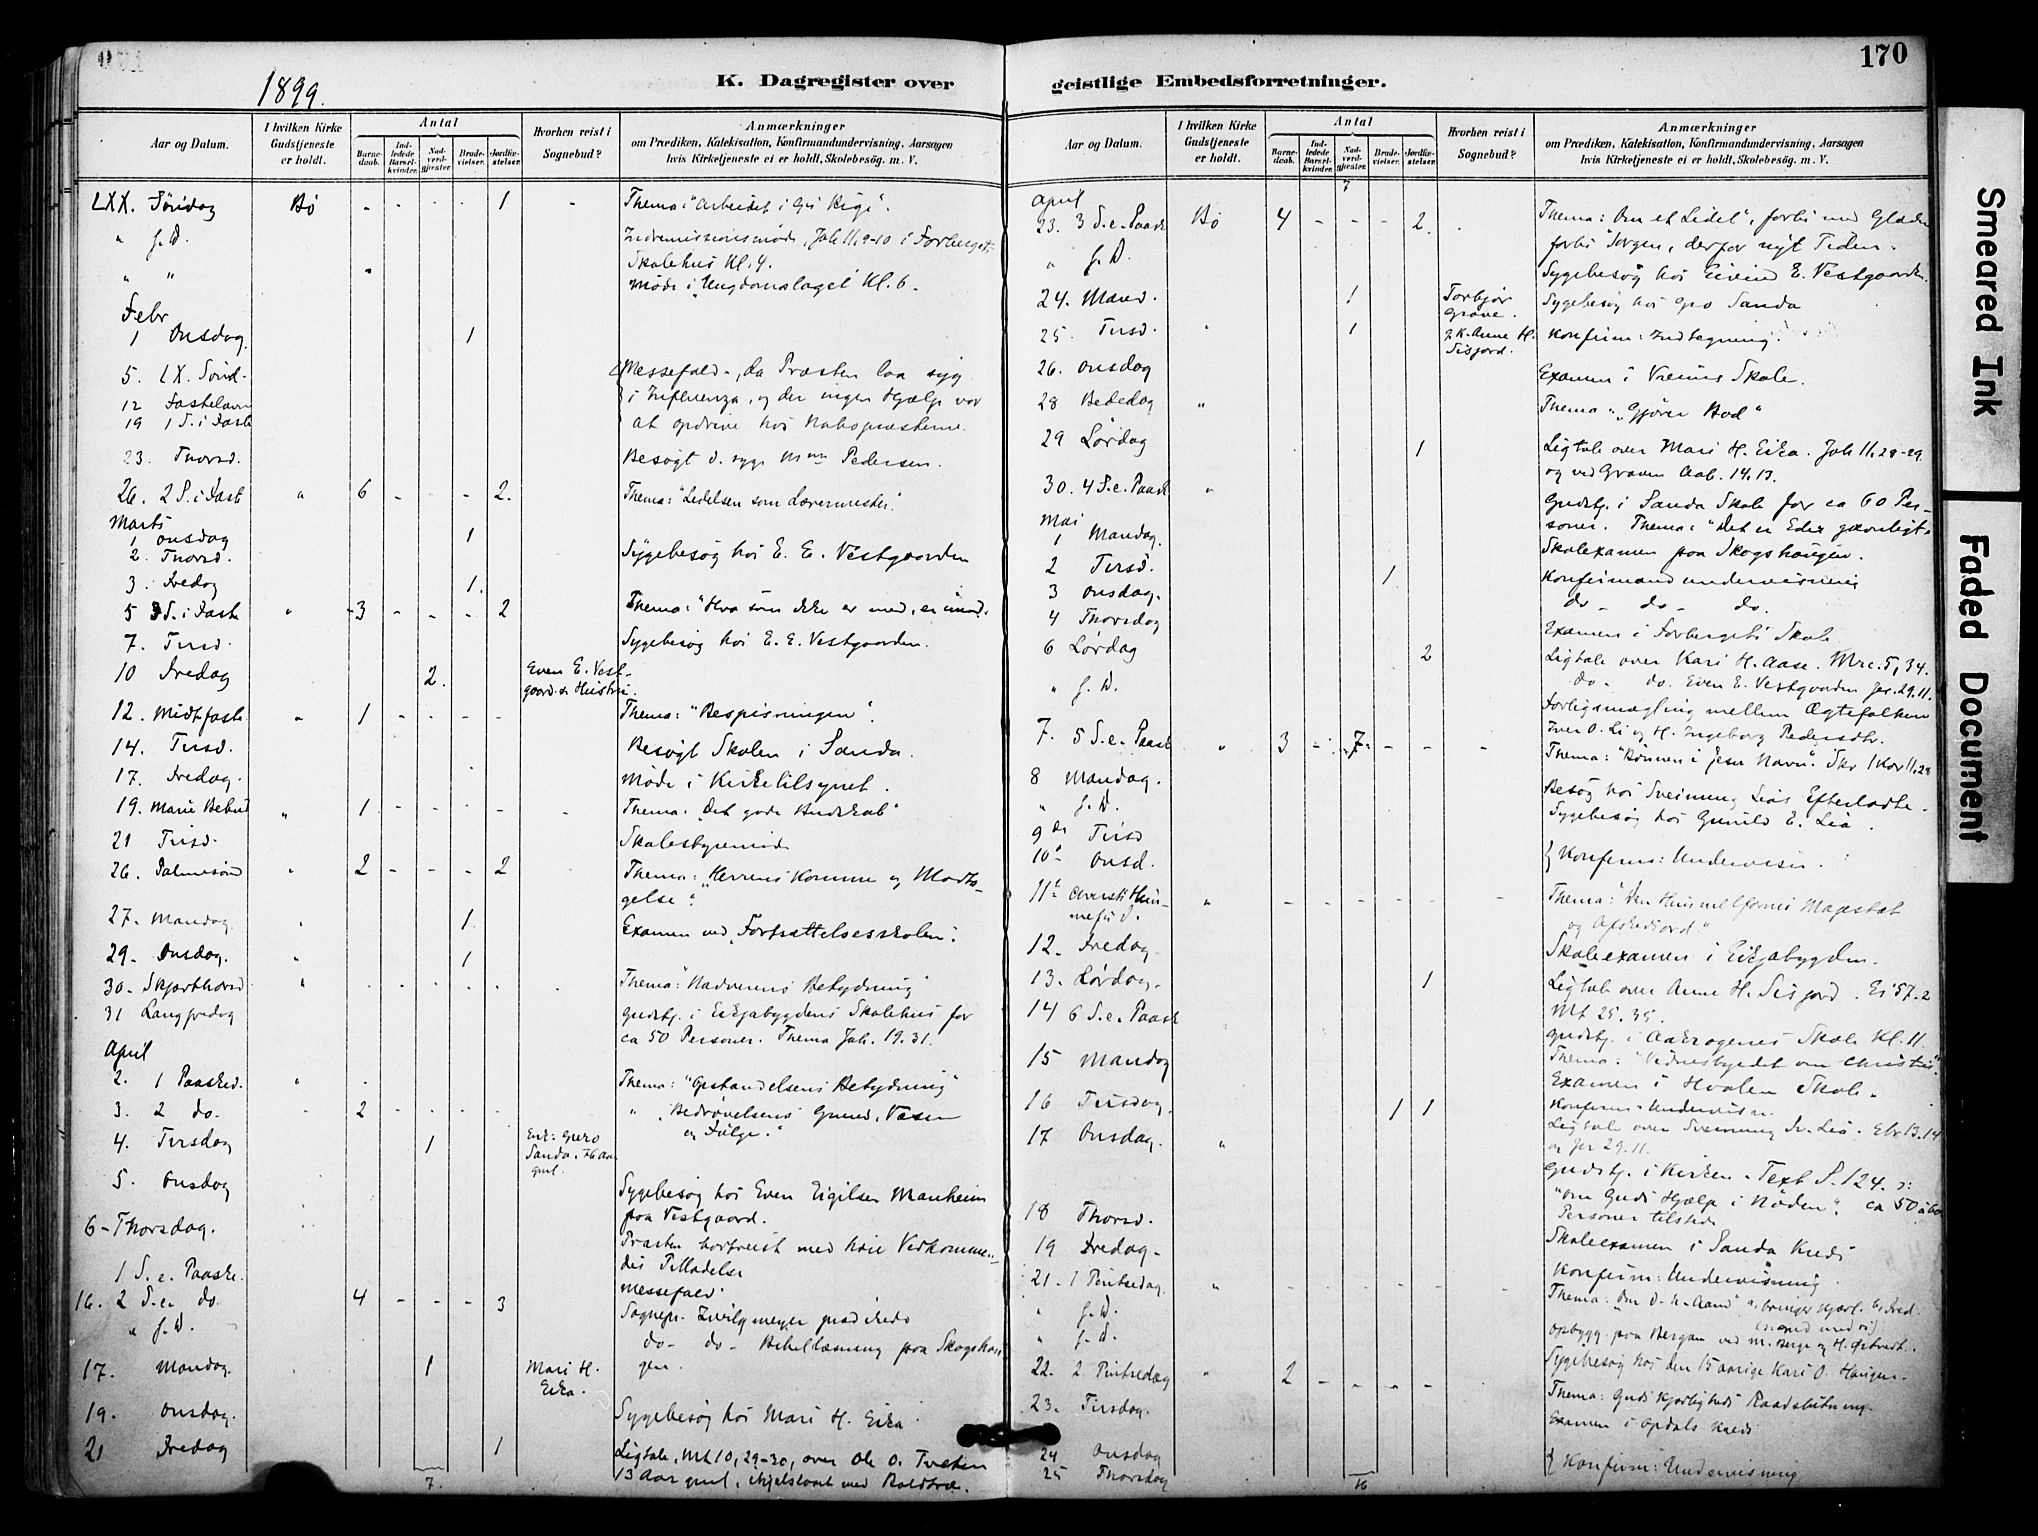 170
1899.
K. Dagregister over
Aar og Datum.
I hvilken Kirke Gudstjeneste er holdt.
Antal
Barnedaab.
Indledede Barselkvinder.
Nadverdgjester.
Brudevielser.
Jordfæstelser.
Hvorhen reist i Sognebud?
Anmærkninger
om Prædiken, Katekisation, Konfirmandundervisning, Aarsagen
hvis Kirketjeneste ei er holdt, Skolebesög. m. V.
LXX. Søndag Bø - - - - 1 - Thema: "Arbeidet i Gs Rige".
" s. D. Indremissionsmøde, Joh 11,9-10 i Forberget
Skolehus Kl. 4.
" " Møde i Ungdomslaget Kl. 6.
Febr
1 Onsdag 1
5. LX. Sønd. Messefald, da Præsten laa syg
12 Fastelavn i Influenza, og der ingen Hjælp var
19 1 S. i Faste at opdrive hos Nabopræsterne.
23. Thorsd. Besøgt d. syge Mrn Pedersen.
26. 2 S. i Fast " 6 - - - 2. Thema: "Lidelsen som Læremester".
Marts
1 Onsdag 1
2. Thorsd. Sygebesøg hos E. E. Vestgaarden
3. Fredag 1.
5 3 S. i Fast " 3 - - - 2 Thema: "Hva som ikke er med, er imod.
7. Tirsd. Sygebesøg hos E. E. Vestgaarden.
10 Fredag 2. Even E. Vestgaard og Hustru.
12. Midtfaste " 1 - - - - Thema: "Bespisningen".
14. Tirsd. Besøgt Skolen i Sanda.
17. Fredag. Møde i Kirketilsynet.
19. Marie Bebud " 1 - - - - - Thema: "Det gode Budskab"
21 Tirsd. Skolestyremøde
26. Palmesønd " 2 - - - 2 Thema: "Herrens Komme og Modtagelse".
27. Mandag " 1. Examen ved "Fortsættelsesskolen".
29. Onsdag. " 1
30. Skjærthorsd " Thema: "Nadverens Betydning"
31 Langfredag Gudstj. i Eikjabygdens Skolehus for
ca 50 Personer. Thema Joh. 19.31.
April
2. 1 Paasked. " Thema: "Opstandelsens Betydning"
3. 2 do. 2 - - - - " "Bedrøvelsens Grund, Væsen
og Følge."
4. Tirsdag 1 Enk: Guro Sanda, 76 Aar gml.
5. Onsdag Sygebesøg hos Even Eigilsen Manheim
paa Vestgaard.
6 - Thorsdag. Præsten bortreist med høie Vedkommendes Tilladelse
1 S. e. Paaske. Messefald.
16. 2 S. e. do. 4 - - - 3 Sognepr. Zwilgmeyer prædikede
" s. D. do - do - Bibellæsning paa Skogshaugen.
17. Mandag. 1 Mari H. Eika.
19. Onsdag. Sygebesøg hos Mari H. Eika.
21 Fredag 1 Ligtale, Mt 10, 29-30, over Ole O. Tveten
13 Aar gml.
7.
geistlige Embedsforretninger.
Aar og Datum.
I hvilken Kirke Gudstjeneste er holdt.
Antal
Barnedaab.
Indledede Barselkvinder.
Nadverdgjester.
Brudevielser.
Jordfæstelser.
Hvorhen reist i Sognebud?
Anmærkninger
om Prædiken, Katekisation, Konfirmandundervisning, Aarsagen
hvis Kirketjeneste ei er holdt, Skolebesög. m. V.
7
April
23. 3 S. e. Paask Bø 4 - - - 2. Thema: Om et Lidet", forbi med Glæden
forbi Sorgen, derfor nyt Tiden.
" s. D. Sygebesøg hos Eivind E. Vestgaarden.
24. Mand. 1 Torbjør Grave. Sygebesøg hos Gro Sanda
25. Tirsd. " 1 Anne H. Sisjord. Konfirm: Indtegning.
26. Onsdag Examen i Vreims Skole.
28 Bededag " Thema "Gjører Bod"
29 Lørdag 1 Ligtale over Mari H. Eika. Joh 11.28-29
og ved Graven Aab. 14.13.
30. 4 S. e. Paask " Gudstj. i Sanda Skole for ca 60 Personer. Thema: "Det er Eder gavnligt"
Mai
1 Mandag. Skolexamen paa Skogshaugen.
2 Tirsd. 1. Konfirmandundervisning
3 Onsdag. do - do - do.
4 Thorsdag Examen i Forbergets Skole
6 Lørdag 2 Ligtale over Kari H. Aase. Mrc. 5,34.
do - do. Even E. Vestgaarden Jer. 29.11.
" s. D. Forligsmægling mellem Ægtefolkene
Iver O. Li og H. Ingeborg Pedersdtr.
7. 5 S. e. Paask " 3 - 7 - - - Thema: "Bønnen i Jesu Navn". Skr 1 Kor 11.28
8 Mandag. Besøg hos Sveinung Lias Efterladte.
" s. D. Sygebesøg hos Gunild E. Lia.
9de Tirsd
10de Onsd. } Konfirm: Undervisn.
11te Christi Himmelf. D. " - - - - - - Thema: "Den Himmelfarnes Majestæt
og Afskedsord."
12. Fredag. Skoleexamen i Eikjabygden.
13. Lørdag. 1 Ligtale over Anne H. Sisjord. Es 57.2
Mt 25.35.
14 6 S. e. Paask Gudstj. i Aakragenes Skole Kl. 11.
Thema: "Vidnesbyrdet om Christus".
15 Mandag Examen i Hvalen Skole.
16 Tirsdag. 1 1 Konfirm: Undervisn.
Ligtale over Sveinung Lia. Ebr 13.14
og Jer 29.11.
17 Onsdag. " Gudstj. i Kirken. Text S. 124. :
"Om Guds Hjælp i Nøden". ca 50 à 60
Personer tilstede
18 Thorsd.
19 Fredag. Skoleexamen i Sanda Kreds
Konfirm: Undervisning.
21. 1 Pintsedag " - - - - - - Thema: "Den D. H. Aand"
" s. D. Opbygg. paa Bergan ved M. Berge og H. Østvedt.
" s. D. Sygebesøg hos den 15 aarige Kari O. Haugen.
22. 2 Pintsedag " 2 - - - - Thema: Guds Kjærligheds Raadslutning.
23. Tirsdag. Examen i Opdals Kreds
24 Onsdag
25 Thorsdag } Konfirm: Undervisning
16
Smeared Ink
Faded Document